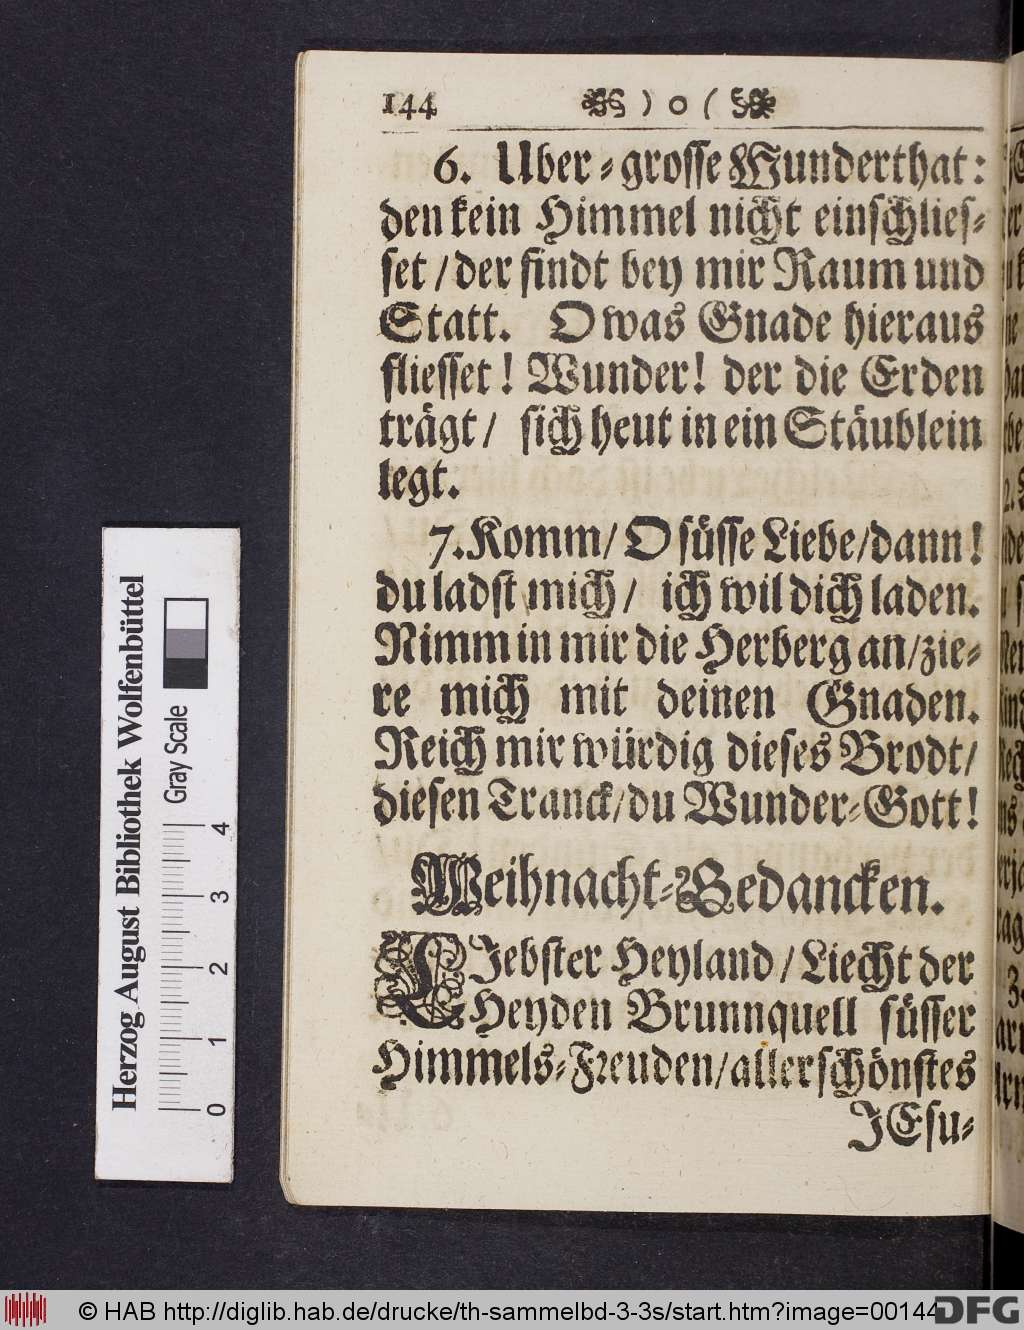 144 ) o (
6. Uber-grosse Wunderthat:
den kein Himmel nicht einschlies-
set / der findt bey mir Raum und
Statt. O was Gnade hieraus
fliesset! Wunder! der die Erden
trägt / sich heut in ein Stäublein
legt.
7. Komm / O süsse Liebe / dann!
du ladst mich / ich wil dich laden.
Nimm in mir die Herberg an / zie-
re mich mit deinen Gnaden.
Reich mir würdig dieses Brodt /
diesen Tranck / du Wunder-Gott!
Weihnacht-Gedancken.
LIebster Heyland / Liecht der
Heyden Brunnquell süsser
Himmels-Freuden / allerschönstes
JEsu-
Herzog August Bibliothek Wolfenbüttel
Gray Scale
0 1 2 3 4
© HAB http://diglib.hab.de/drucke/th-sammelbd-3-3s/start.htm?image=00144
DFG